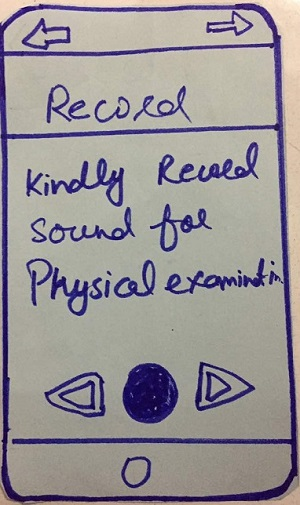 Record
Kindly Record
Sound for
Physical examinatin